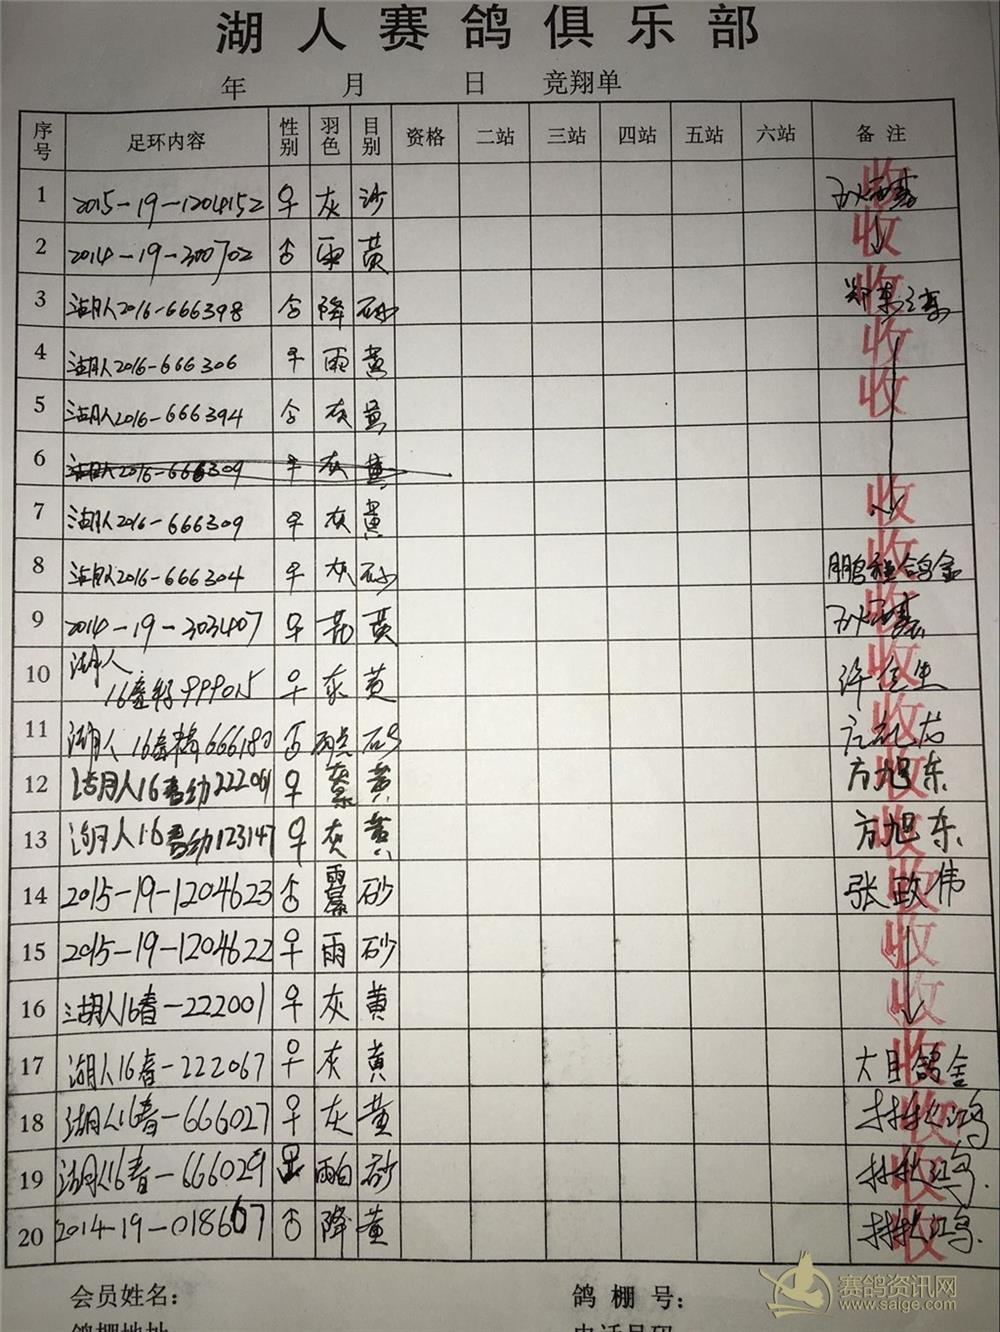 湖人赛鸽俱乐部
年 月 日 竞翔单
序号 足环内容 性别 羽色 目别 资格 二站 三站 四站 五站 六站 备注
1 2015-19-1204152 ♀ 灰 沙 收
2 2014-19-300702 ♂ 黄 收
3 湖人2016-666398 降 砂 收
4 湖人2016-666306 ♀ 雨 黄 收
5 湖人2016-666394 灰 黄 收
6 湖人2016-666309 ♀ 灰 黄
7 湖人2016-666309 ♀ 灰 黄 收
8 湖人2016-666304 ♀ 灰 砂 收 鹏程鸽舍
9 2014-19-303407 ♀ 黄 收
10 湖人
16春 999015 ♀ 灰 黄 收
11 湖人16春 666180 雨点 砂 收
12 湖人16春幼222061 ♀ 黄 收 方旭东
13 湖人16春幼123147 ♀ 灰 黄 收 方旭东
14 2015-19-1204623 ♂ 砂 收 张政伟
15 2015-19-1204622 ♀ 雨 砂 收
16 湖人16春-222001 ♀ 灰 黄 收
17 湖人16春-222067 ♀ 灰 黄 收 大目鸽舍
18 湖人16春-666027 ♀ 灰 黄 收
19 湖人16春-666029 雨白 砂 收
20 2014-19-018667 ♂ 降 黄 收
会员姓名： 鸽棚号：
鸽棚地址 电话号码
赛鸽资讯网
www.saige.com